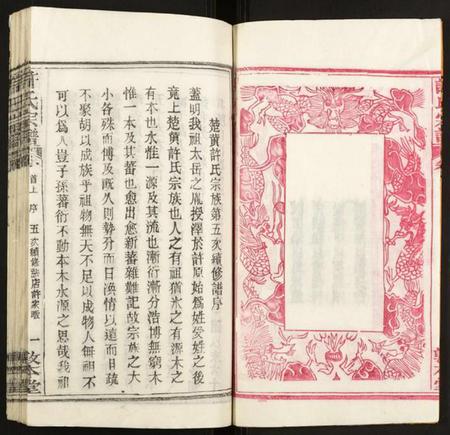 楚黄許氏宗族第五次續修譜序
蓋明我祖太岳之胤授澤於許原始爲姓受姓之後
竟上楚黄許氏宗族也人之有祖猶水之有源木之
有本也水惟一源及其流也漸衍漸分浩博無窮木
惟一本及其蕃也愈出愈新蕃雜難記故宗族之大
小各殊而傳及既久則勢分而日渙情以遠而日疏
不聚胡以成族乎祖物無天不足以成物人無祖不
可以爲人豈子孫蕃衍不動本木水源之思哉我祖
許氏宗譜
首上 序 五次續修
一 敦本堂
許氏宗譜
敦本堂